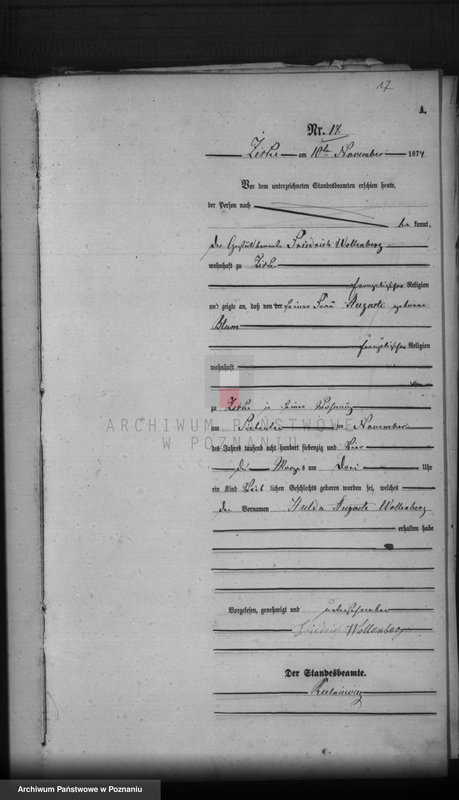 17
A.
Nr. 18
Zirke am 10ten November 1874
Vor dem unterzeichneten Standesbeamten erschien heute,
der Person nach
be kannt,
der Friedrich Wollenberg
wohnhaft zu Zirke
evangelischer Religion
und zeigte an, daß von der seiner Frau Auguste geborene
Blum
evangelischer Religion
wohnhaft
zu Zirke in seiner Wohnung
am Siebenten November
des Jahres tausend acht hundert siebenzig und vier
um Drei Uhr
ein Kind weib lichen Geschlechts geboren worden sei, welches
den Vornamen Hulda Auguste Wollenberg
erhalten habe
Vorgelesen, genehmigt und unterschrieben
Friedrich Wollenberg
Der Standesbeamte.
ARCHIWUM PAŃSTWOWE
W POZNANIU
Archiwum Państwowe w Poznaniu